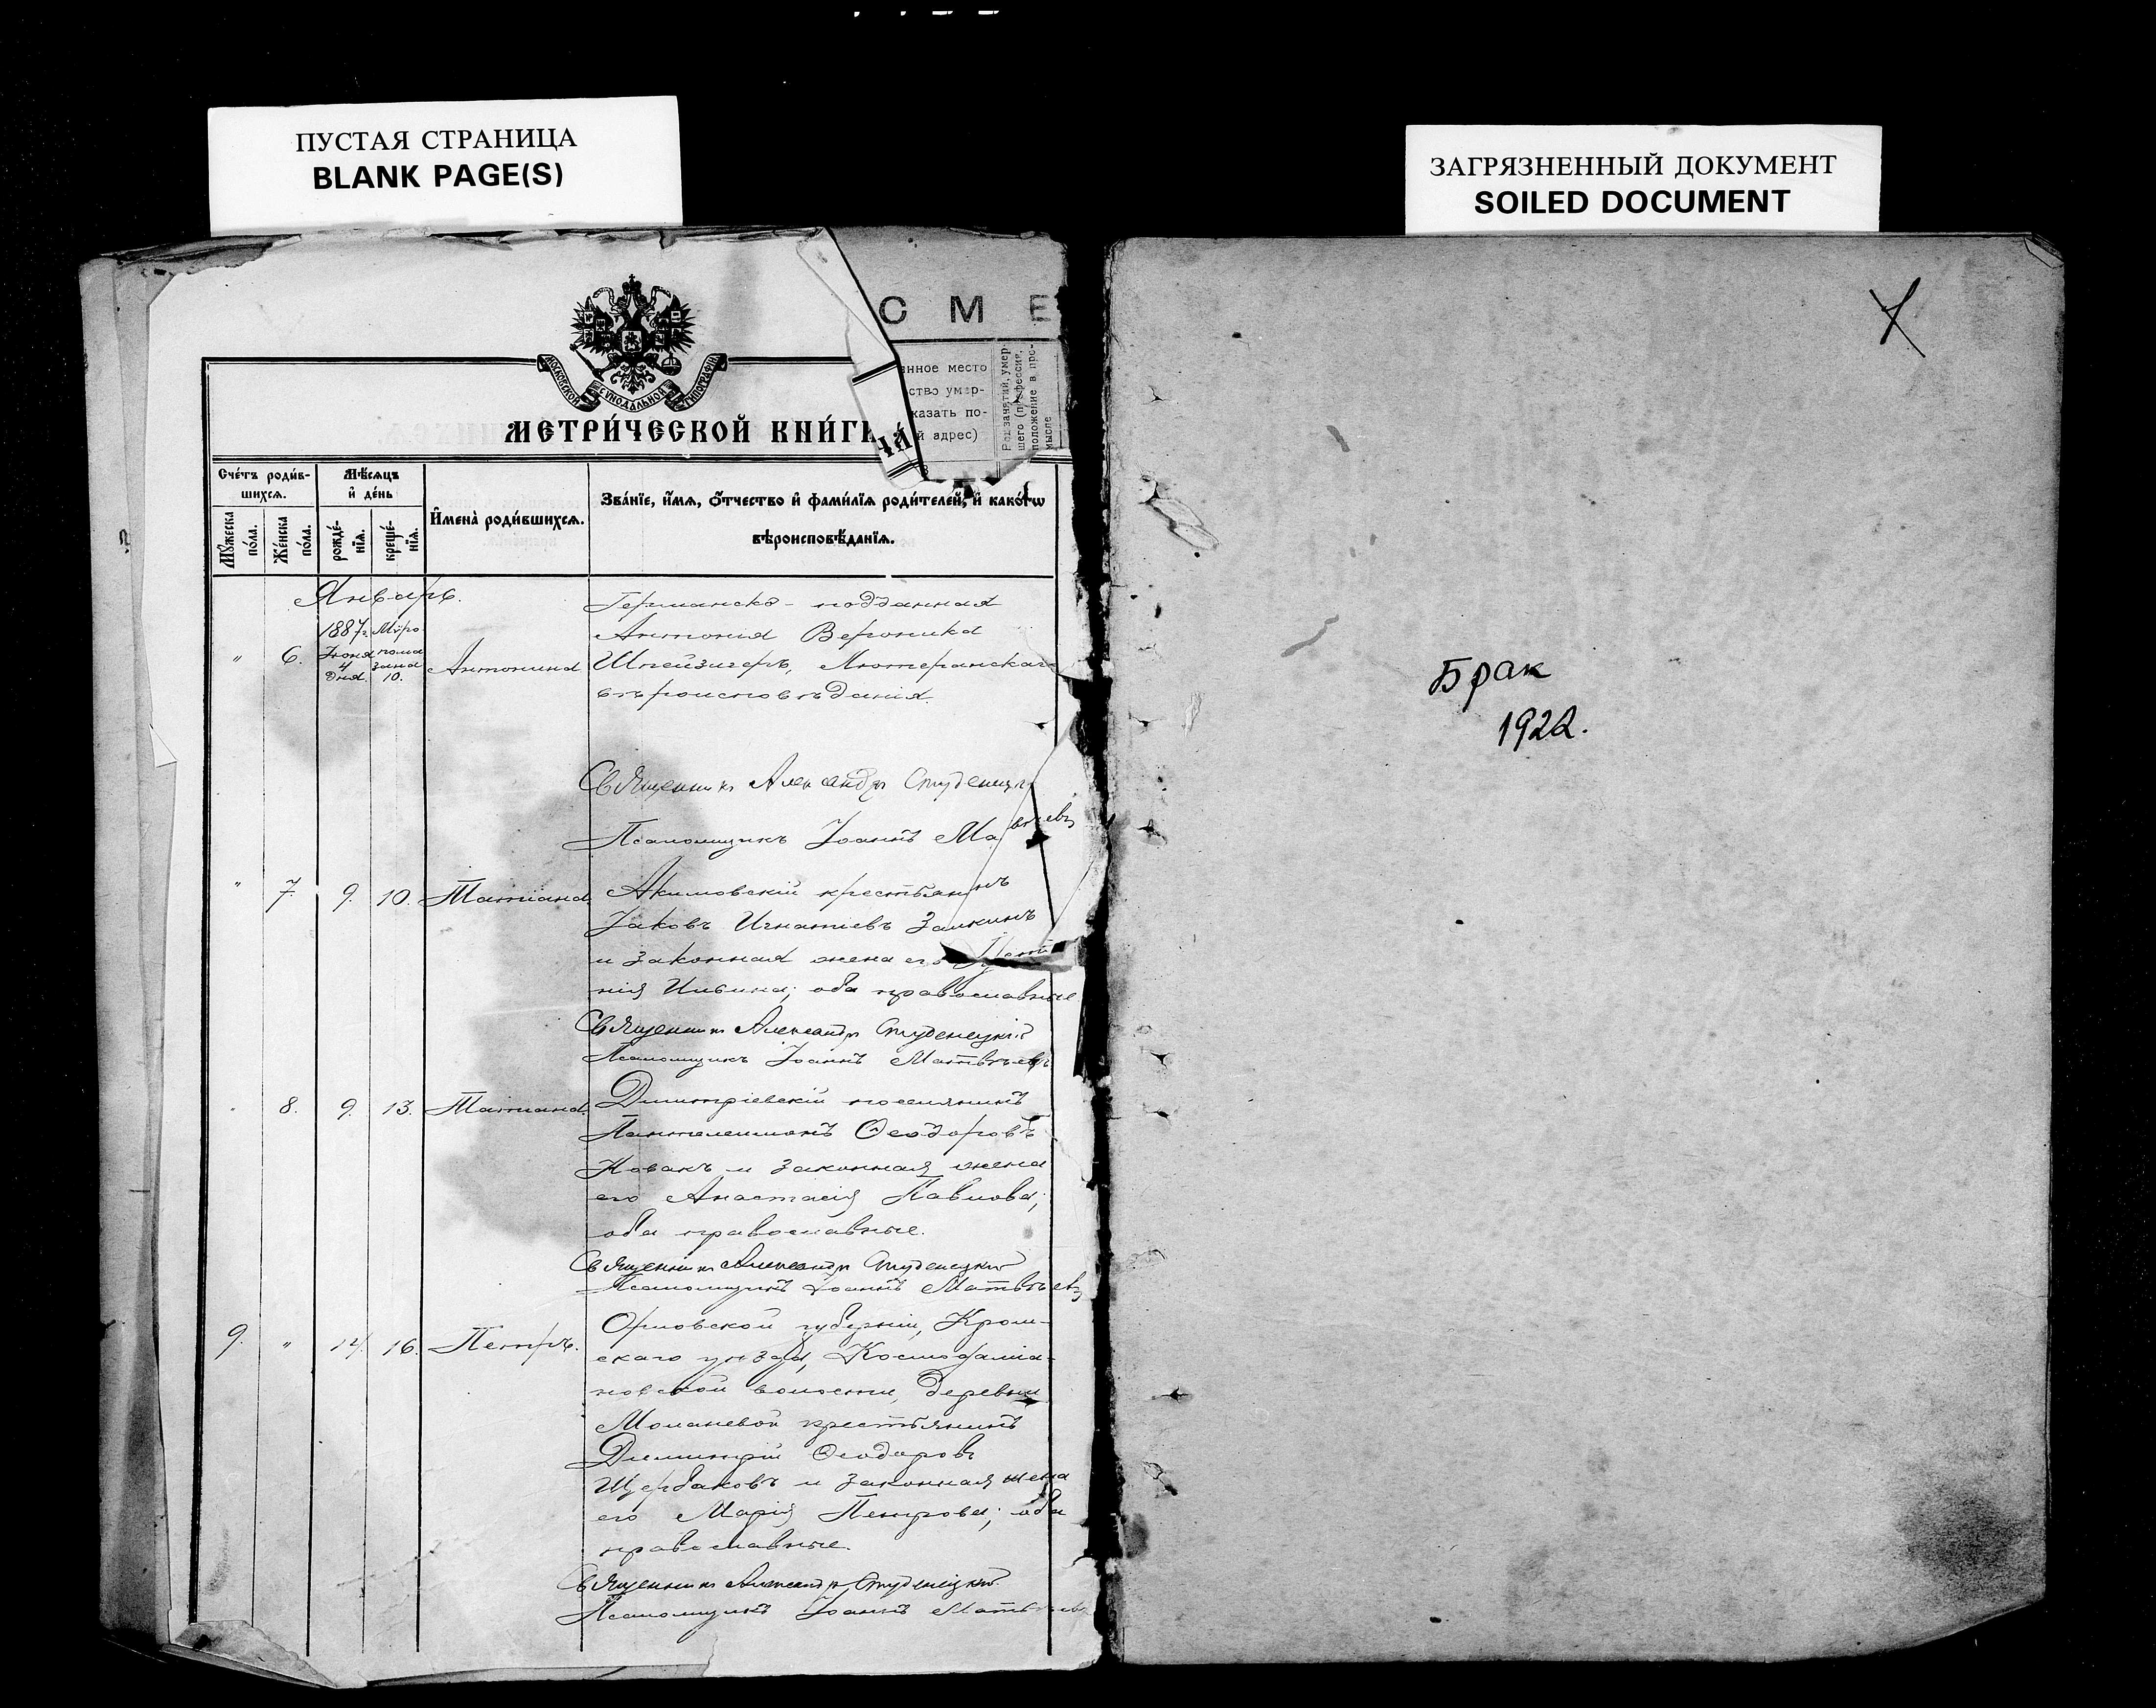 ПУСТАЯ СТРАНИЦА
BLANK PAGE(S)
ЗАГРЯЗНЕННЫЙ ДОКУМЕНТ
SOILED DOCUMENT
С М Е
нное место
ство умер-
казать по-
й адрес)
Род занятий, умер-
шего (профессия,
положение в про-
мысле
МОСКОВСКОЙ СѴНОДАЛЬНОЙ ТИПОГРАФІИ
МЕТРИ́ЧЕСКОЙ КНИ́ГИ
Сче́тъ роди́в-
шихсѧ.
Мѣ́сѧцъ
и҆ де́нь
И҆мена̀ роди́вшихсѧ.
Зва́нїе, и҆́мѧ, ѻ҆́тчество и҆ фами́лїѧ роди́телей, и҆ како́гѡ
вѣроисповѣ́данїѧ.
Мꙋ́жеска по́ла.
Же́нска по́ла.
рожде́-нїѧ.
креще́-нїѧ.
Январь.
Германско-подданная
1887г. Мѵро
Антонія Вероника
" 6. Іюня 4 дня. пома зана 10. Антонина
Шпейзигеръ, Лютеранскаго
вѣроисповѣданія.
Священникъ Александръ Студенецкій
Псаломщикъ Іоаннъ Матвѣевъ
" 7. 9. 10. Татіана
Акимовскій крестьянинъ
Іаковъ Игнатіевъ Заикинъ
и законная жена его
нія Ильина; оба православные.
Священникъ Александръ Студенецкій
Псаломщикъ Іоаннъ Матвѣевъ
8. 9. 13. Татіана.
Димитріевскій поселянинъ
Пантелеимонъ Ѳеодоровъ
Новакъ и законная жена
его Анастасія Павлова;
оба православные.
Священникъ Александръ Студенецкій
Псаломщикъ Іоаннъ Матвѣевъ
9. " 14. 16. Петръ.
Орловской губерніи, Кром-
скаго уѣзда, Космодаміа-
новской волости, деревни
крестьянинъ
Димитрій Ѳеодоровъ
Щербаковъ и законная жена
его Марія Петрова; оба
православные.
Священникъ Александръ Студенецкій
Псаломщикъ Іоаннъ Матвѣевъ
Брак
1922.